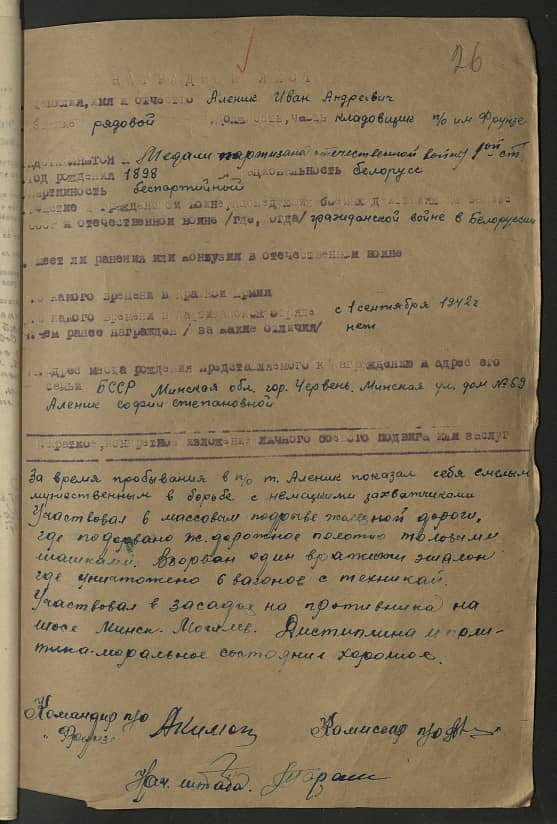 26
НАГРАДНОЙ ЛИСТ
Фамилия, имя и отчество Аленик Иван Андреевич
рядовой должность, часть кладовщик п/о им Фрунзе
Медали партизана отечественной войны 1ой ст.
год рождения 1898 национальность белорусс
партийность беспартийный
СССР и отечественной войне /где, когда/ гражданской войне в Белоруссии
имеет ли ранения или контузии в отечественной войне
с какого времени в красной армии
с какого времени в с 1 сентября 1942г
чем ранее награжден /за какие отличия/ нет
адрес места рождения представляемого к награждению и адрес его
семьи БССР Минская обл. гор. Червень. Минская ул. дом № 69
Аленик Софии Степановной
краткое, конкретное изложение личного боевого подвига или заслуг
За время пребывания в п/о т. Аленик показал себя смелым
мужественным в борьбе с немецкими захватчиками
Участвовал в массовом подрыве железной дороги,
где подорвано ж. дорожное полотно толовыми
шашками. Взорван один вражиский эшалон
где уничтожено 6 вагонов с техникай.
Участвовал в засадах на противника на
шосе Минск-Могилев. Дистиплина и поли-
тико-моральное состояние хорошое.
Командир п/о Акимов Комиссар п/о
" Фрунзе
Нач. штаба.